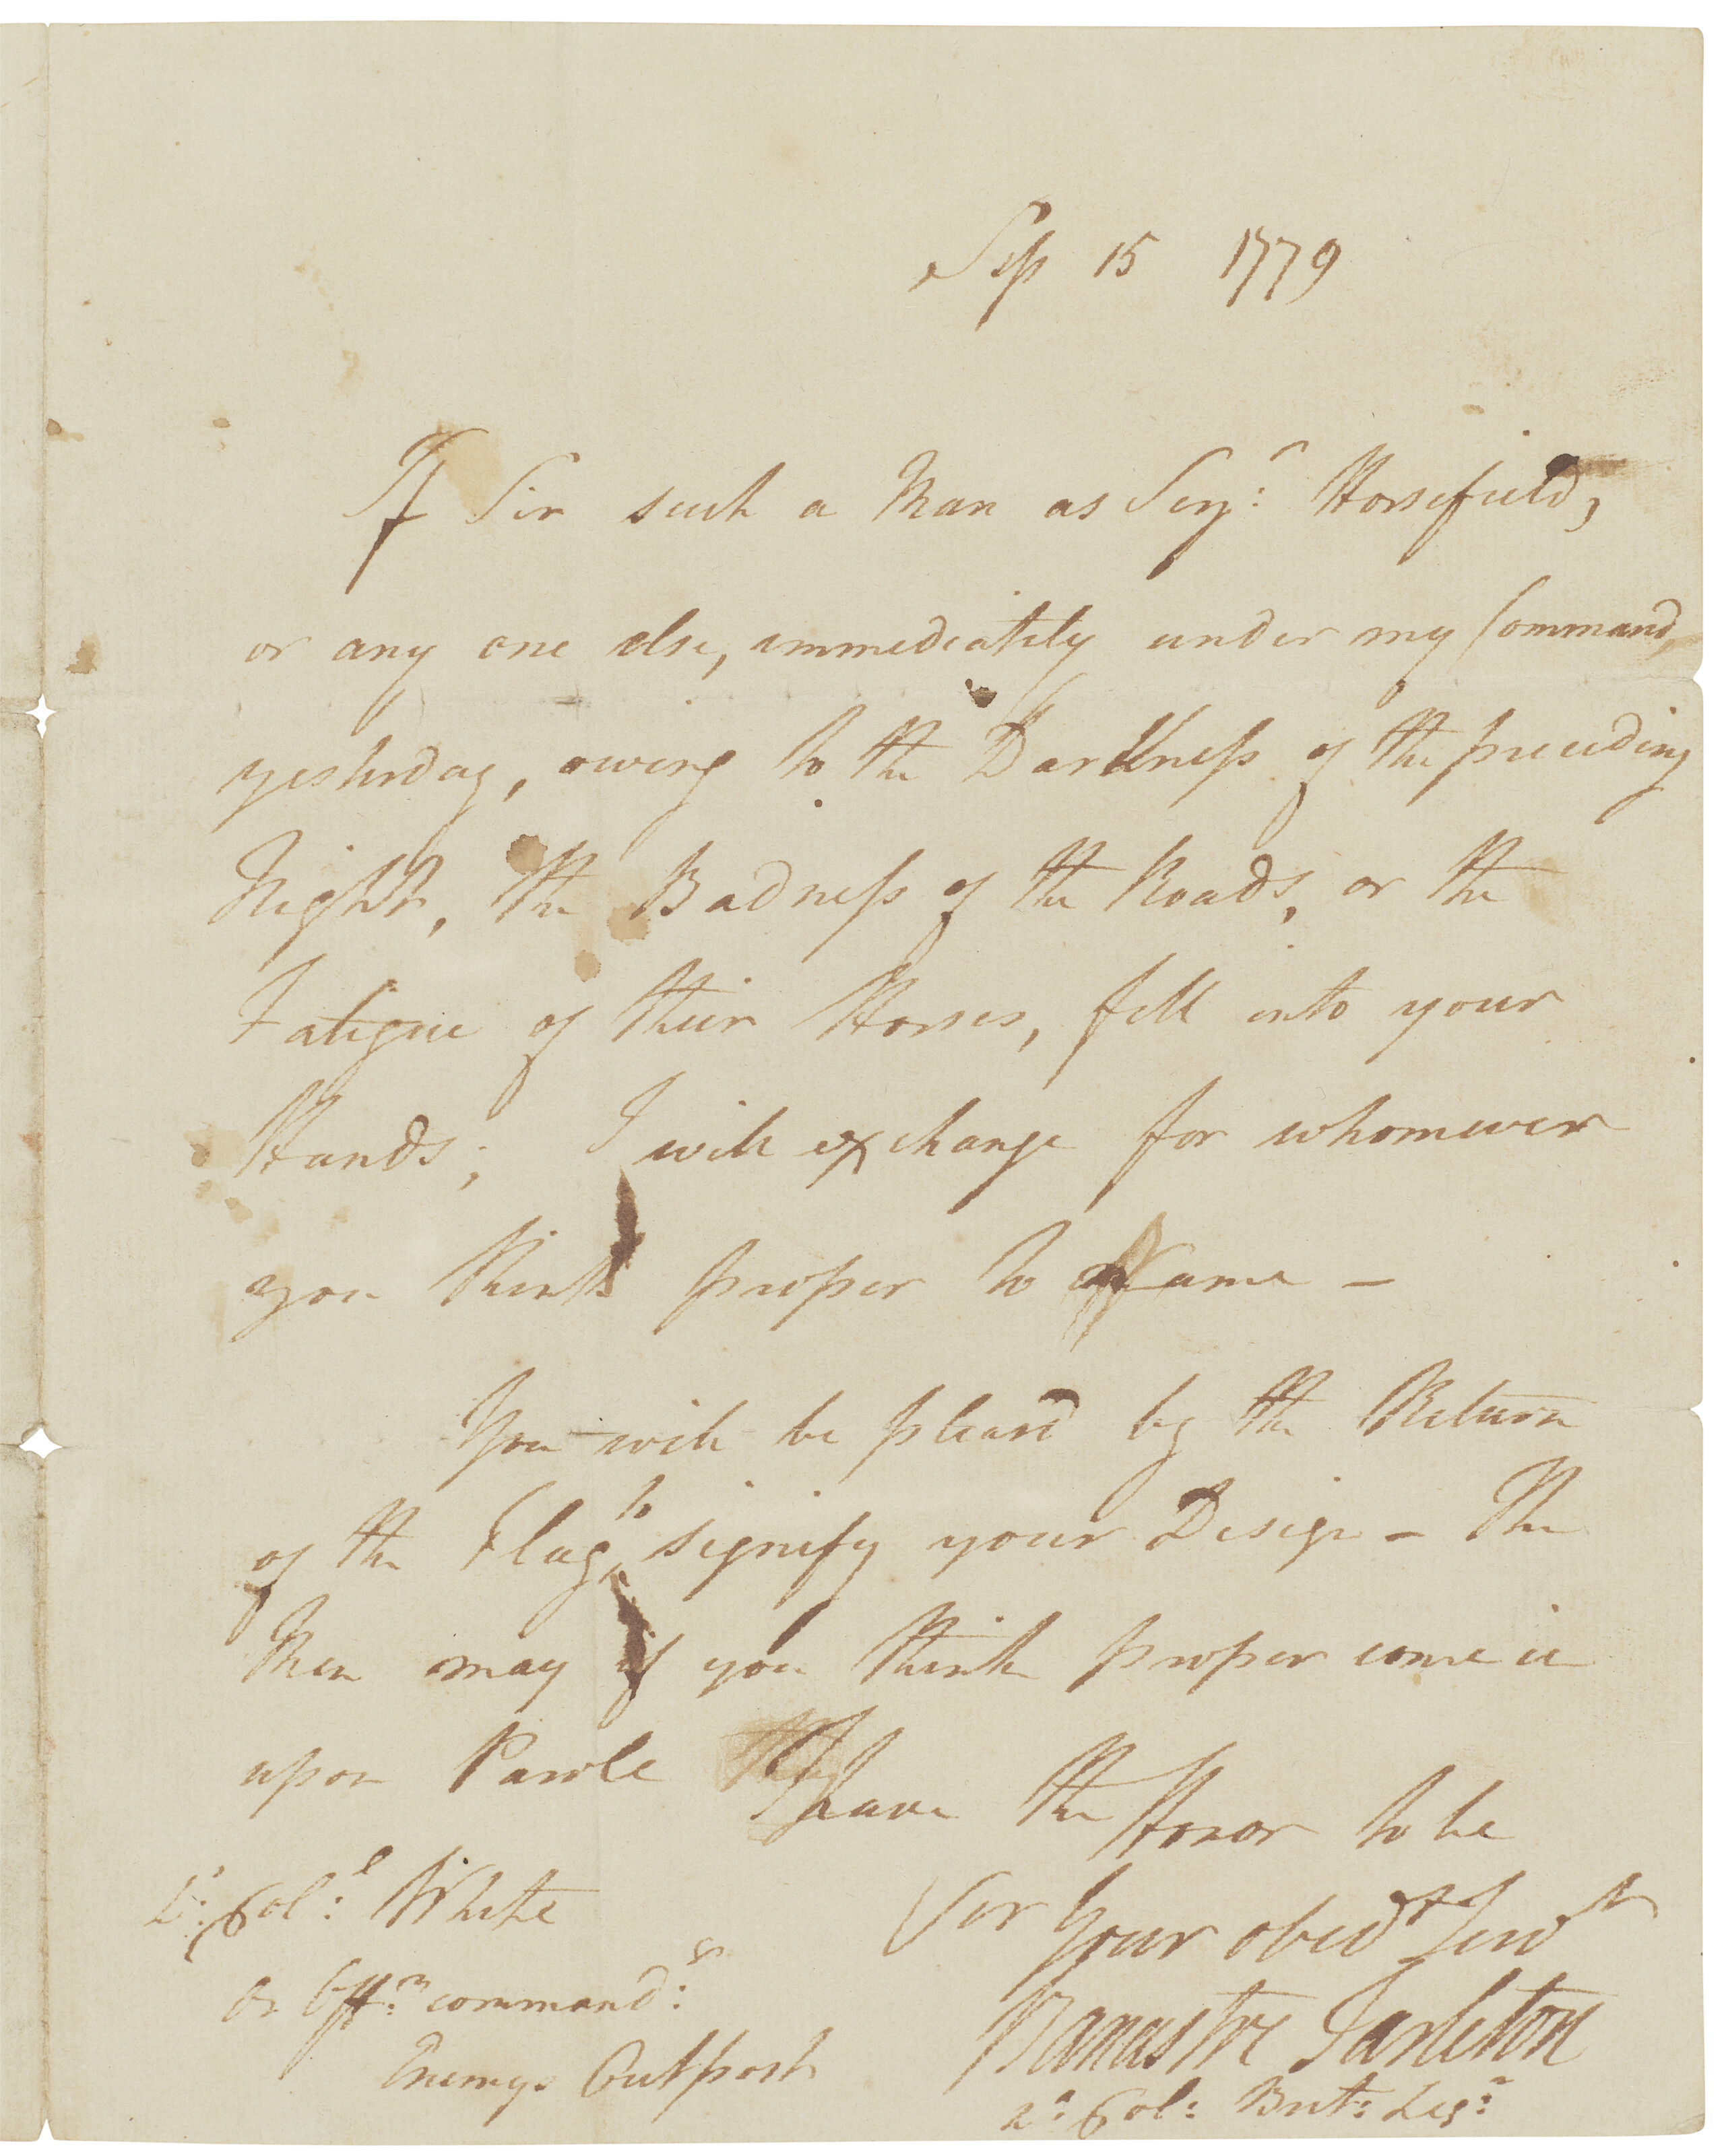 Sep 15 1779
If Sir such a Man as Serj:t Horsefield,
or any one else, immediately under my Command,
yesterday, owing to the Darkness of the preceding
Night, the Badness of the Roads, or the
Fatigue of their Horses, fell into your
Hands; I will exchange for whomever
you think proper to Name –
You will be pleasd by the Return
of the Flag, to signify your Design – The
Men may if you think proper come in
upon Parole
I have the Honor to be
Sir Your obedt Servt
Banastre Tarleton
Lt: Col: Brit: Legn:
Lt: Col:l White
or Offr: command:g
Enemys Outpost